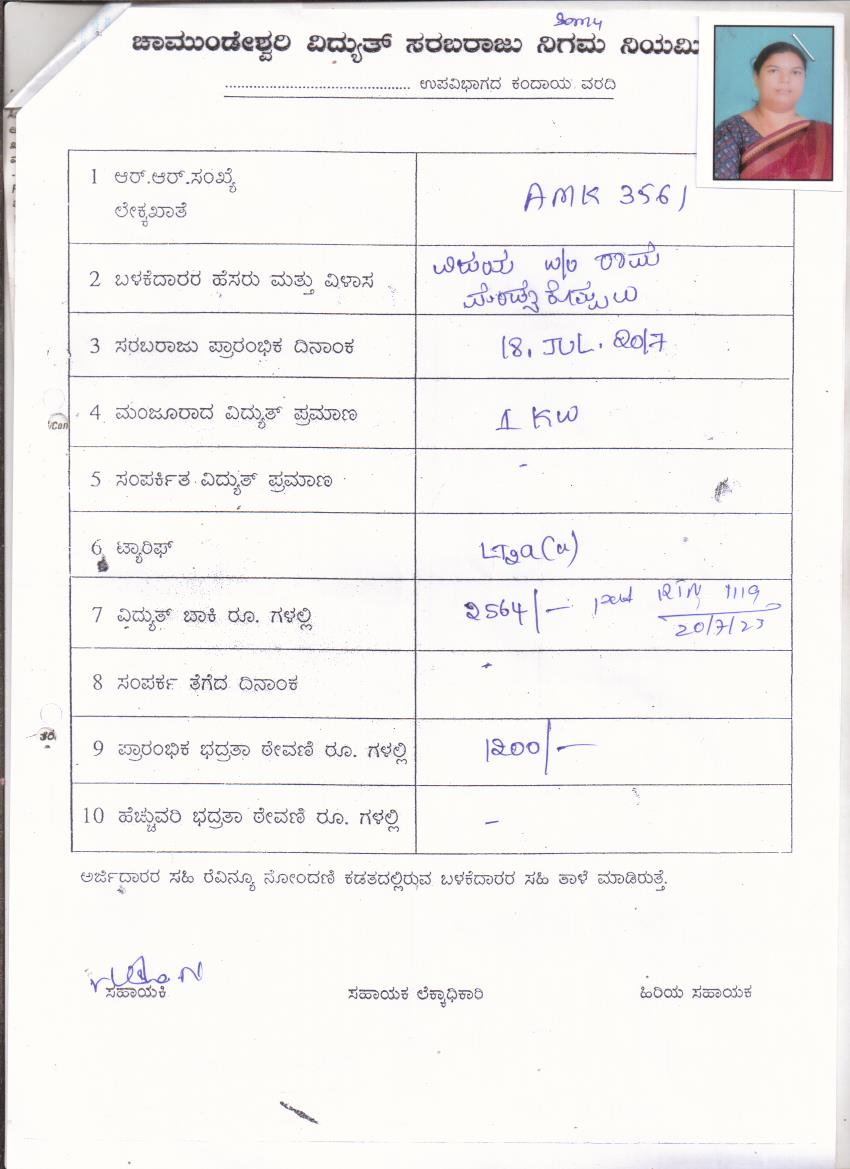 ಚಾಮುಂಡೇಶ್ವರಿ ವಿದ್ಯುತ್ ಸರಬರಾಜು ನಿಗಮ ನಿಯಮಿ
........................................... ಉಪವಿಭಾಗದ ಕಂದಾಯ ವರದಿ
1 ಆರ್.ಆರ್.ಸಂಖ್ಯೆ
ಲೇಕ್ಕಖಾತೆ
AMK 3561
2 ಬಳಕೆದಾರರ ಹೆಸರು ಮತ್ತು ವಿಳಾಸ
ವಿಜಯ w/o ರಾಮೆ
3 ಸರಬರಾಜು ಪ್ರಾರಂಭಿಕ ದಿನಾಂಕ
18. JUL. 2017
4 ಮಂಜೂರಾದ ವಿದ್ಯುತ್ ಪ್ರಮಾಣ
1 KW
5 ಸಂಪರ್ಕಿತ ವಿದ್ಯುತ್ ಪ್ರಮಾಣ
-
6 ಟ್ಯಾರಿಫ್
LT2a(ii)
7 ವಿದ್ಯುತ್ ಬಾಕಿ ರೂ. ಗಳಲ್ಲಿ
2564/- RTN 1119
20/7/23
8 ಸಂಪರ್ಕ ತೆಗೆದ ದಿನಾಂಕ
-
9 ಪ್ರಾರಂಭಿಕ ಭದ್ರತಾ ಠೇವಣಿ ರೂ. ಗಳಲ್ಲಿ
1200/-
10 ಹೆಚ್ಚುವರಿ ಭದ್ರತಾ ಠೇವಣಿ ರೂ. ಗಳಲ್ಲಿ
-
ಅರ್ಜಿದಾರರ ಸಹಿ ರೆವಿನ್ಯೂ ನೋಂದಣಿ ಕಡತದಲ್ಲಿರುವ ಬಳಕೆದಾರರ ಸಹಿ ತಾಳೆ ಮಾಡಿರುತ್ತೆ.
ಸಹಾಯಕಿ ಸಹಾಯಕ ಲೆಕ್ಕಾಧಿಕಾರಿ ಹಿರಿಯ ಸಹಾಯಕ